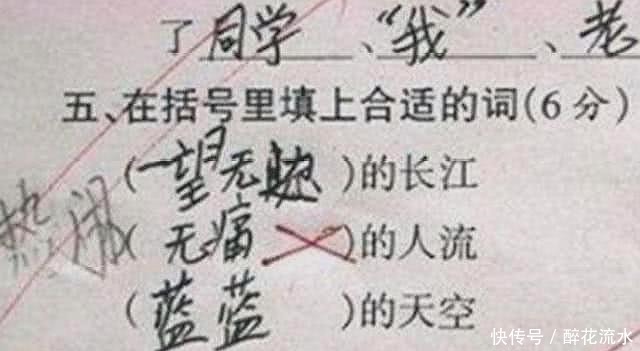 了同学、“我”、老
五、在括号里填上合适的词(6分)
(一望无)的长江
热闹(无痛)的人流
(蓝蓝)的天空
快传号/醉花流水